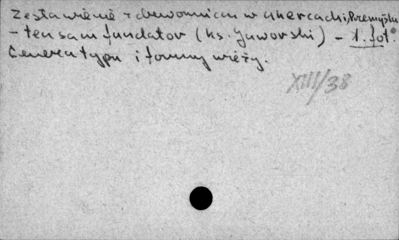 Zestawienie z dzwonnicami w Uhercach i, Przemyślu
- ten sam fundator (ks. Jaworski) - 1. fot.
Geneza typu i formy wieży.
XIII/38